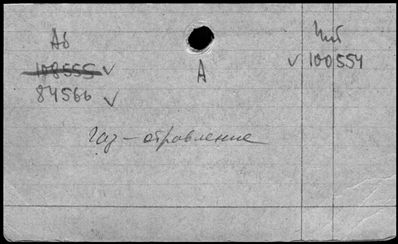 Аб
108555 ✓
84566 ✓
А
Шб
✓ 100554
газ – отравление